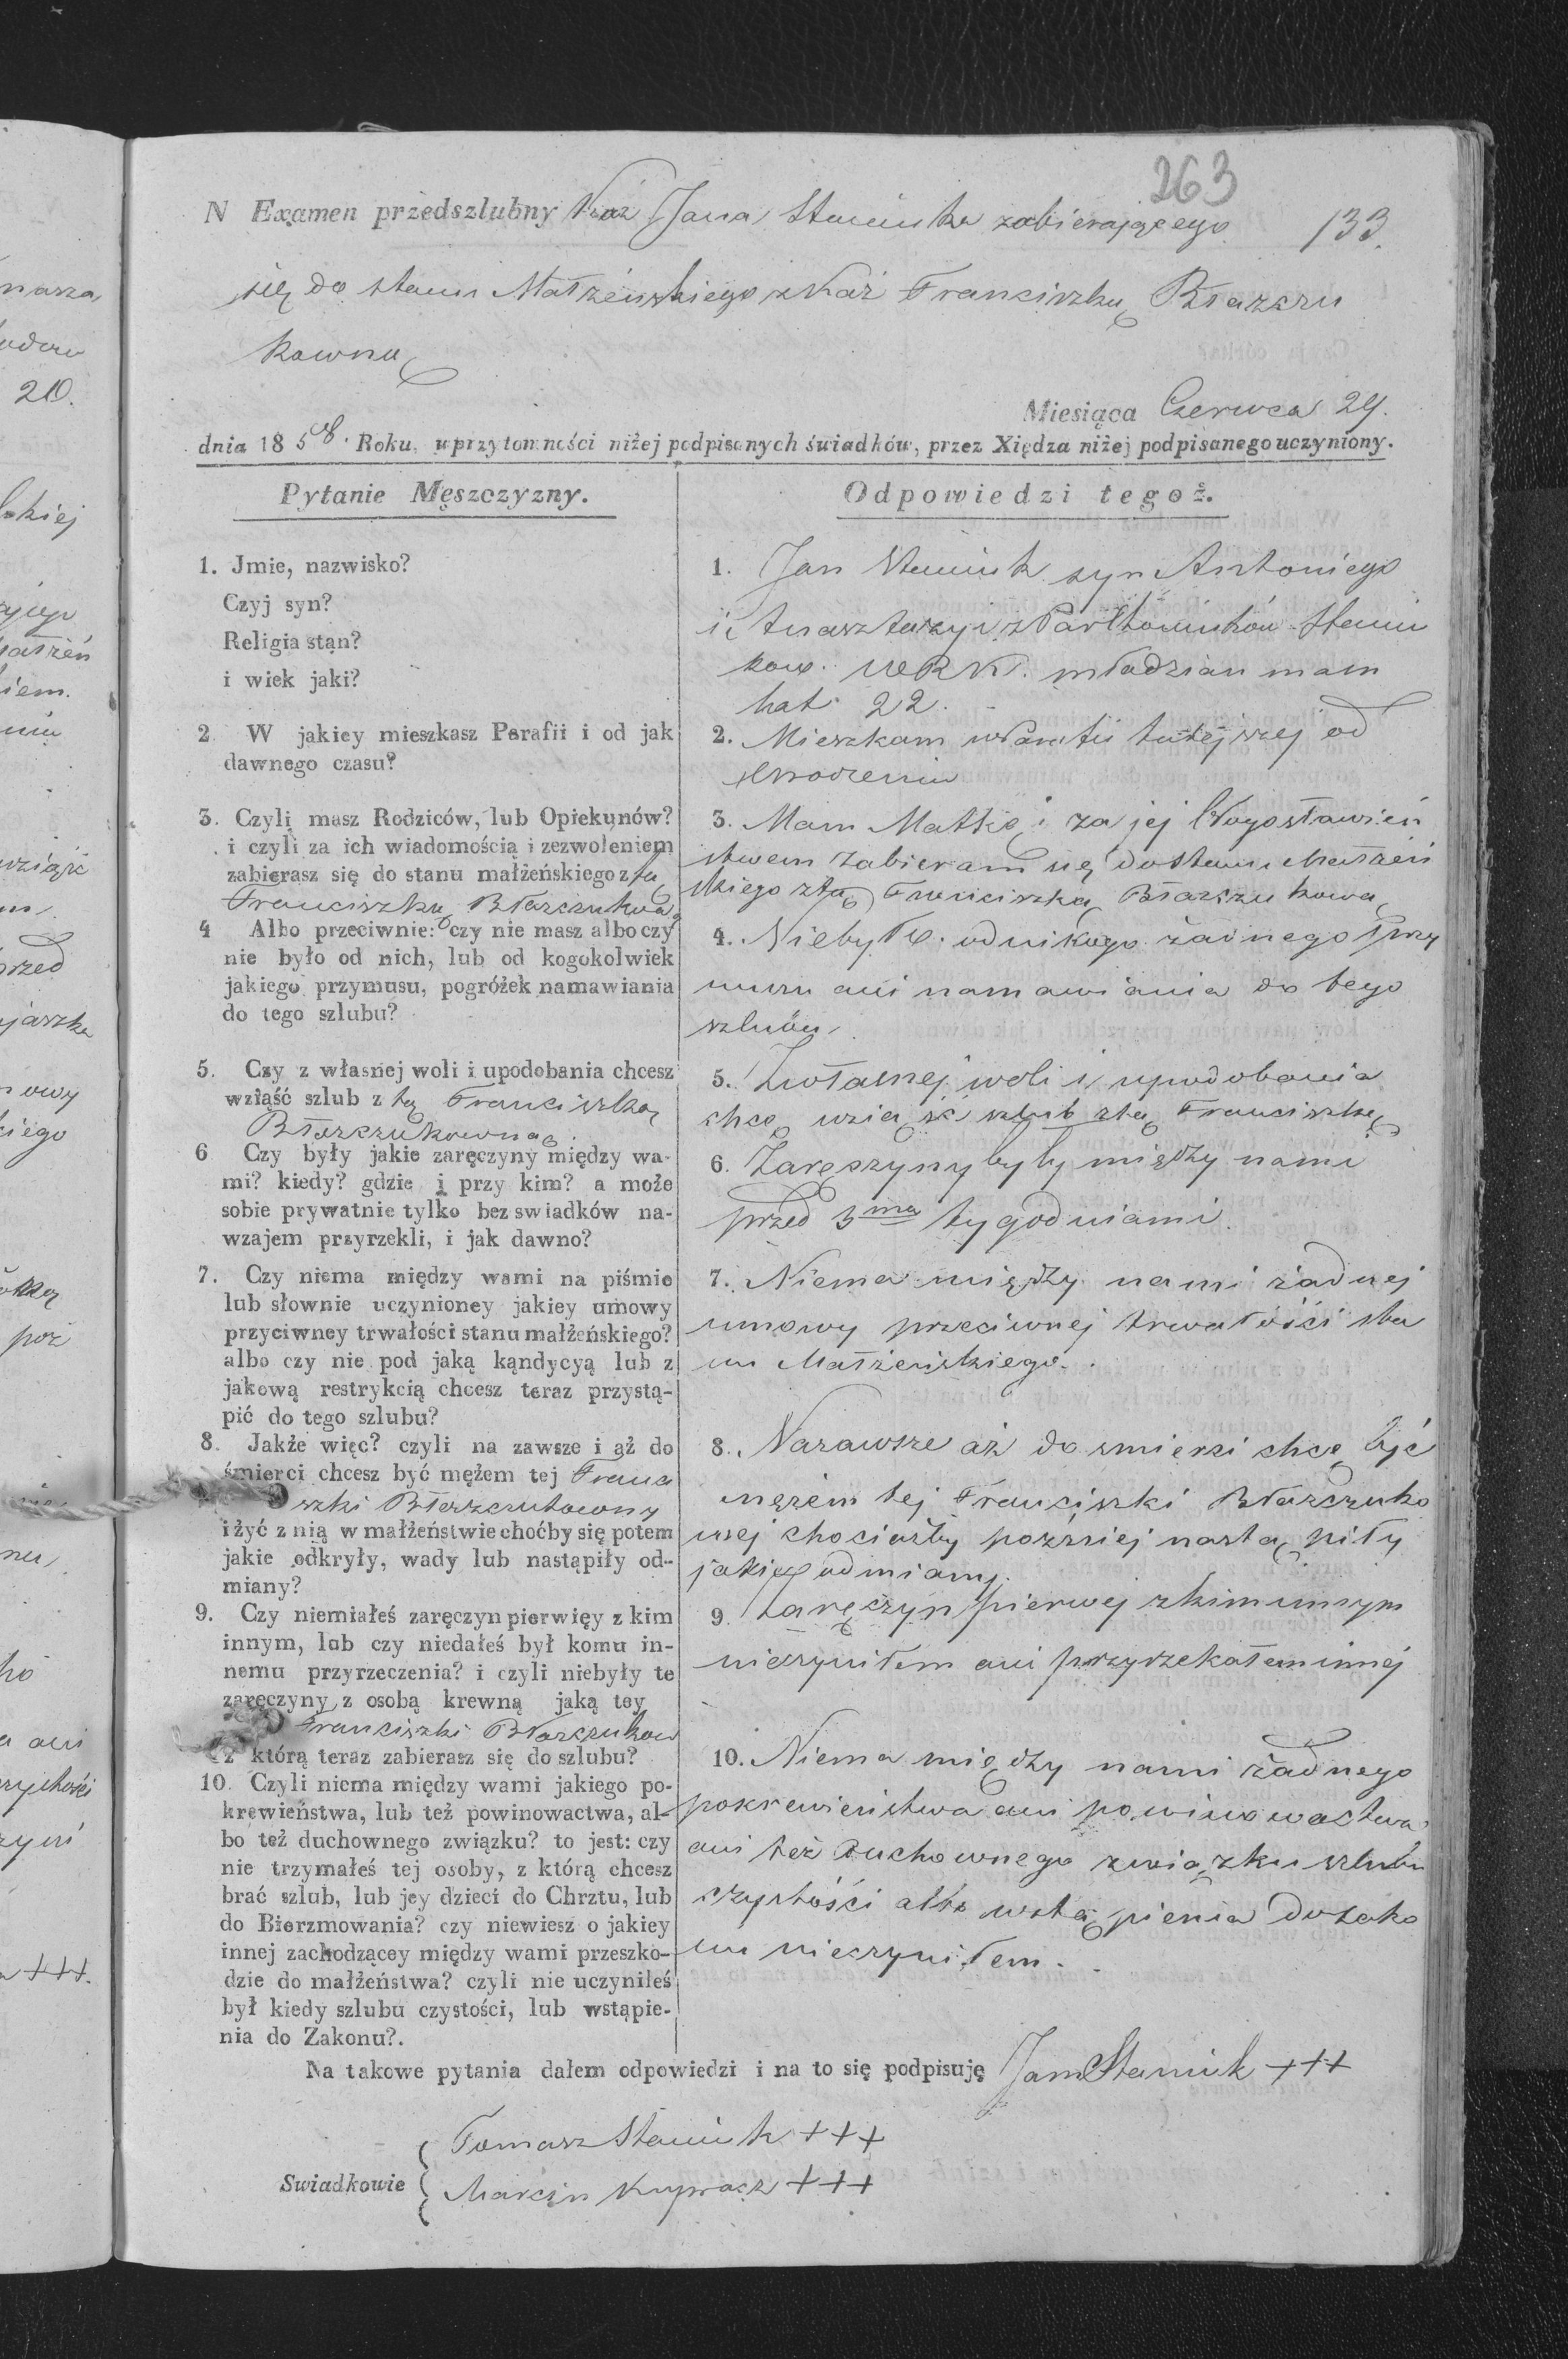 263
N Exąmen przedszlubny Jana Staniuka zabierającego 133.
się do stanu Małżeńskiego z Franciszką Błaszczu
kowną
Miesiąca Czerwca 29.
dnia 1858. Roku, w przytomności niżej podpisanych świadków, przez Xiędza niżej podpisanego uczyniony.
Pytanie Męszczyzny.
1. Jmie, nazwisko?
Czyj syn?
Religia stan?
i wiek jaki?
2 W jakiey mieszkasz Parafii i od jak
dawnego czasu?
3. Czyli masz Rodziców, lub Opiekunów?
i czyli za ich wiadomością i zezwoleniem
zabierasz się do stanu małżeńskiego z tą
Franciszką
4 Albo przeciwnie: czy nie masz albo czy
nie było od nich, lub od kogokolwiek
jakiego przymusu, pogróżek namawiania
do tego szlubu?
5. Czy z własnej woli i upodobania chcesz
wziąść szlub z tą Franciszką
6 Czy były jakie zaręczyny między wa-
mi? kiedy? gdzie i przy kim? a może
sobie prywatnie tylko bez swiadków na-
wzajem przyrzekli, i jak dawno?
7. Czy niema między wami na piśmie
lub słownie uczynioney jakiey umowy
przyciwney trwałości stanu małżeńskiego?
albo czy nie pod jaką kąndycyą lub z
jakową restrykcią chcesz teraz przystą-
pić do tego szlubu?
8. Jakże więc? czyli na zawsze i aż do
śmierci chcesz być mężem tej Franci
szki
i żyć z nią w małżeństwie choćby się potem
jakie odkryły, wady lub nastąpiły od-
miany?
9. Czy niemiałeś zaręczyn pierwięy z kim
innym, lub czy niedałeś był komu in-
nemu przyrzeczenia? i czyli niebyły te
zaręczyny z osobą krewną jaką tey
Franciszki
z którą teraz zabierasz się do szlubu?
10. Czyli niema między wami jakiego po-
krewieństwa, lub też powinowactwa, al-
bo też duchownego związku? to jest: czy
nie trzymałeś tej osoby, z którą chcesz
brać szlub, lub jey dzieci do Chrztu, lub
do Bierzmowania? czy niewiesz o jakiey
innej zachodzącey między wami przeszko-
dzie do małżeństwa? czyli nie uczyniłeś
był kiedy szlubu czystości, lub wstąpie-
nia do Zakonu?.
Odpowiedzi tegoż.
1. Jan Staniuk syn Antoniego
i Staniu
ków. W R K. młodzian mam
lat 22.
2. Mieszkam w Parafii tutejszej od
urodzenia
3. Mam Matkę i za jej błogosławień
stwem zabieram się do stanu Małżeń
skiego z tą Franciszką
4. Niebyło od nikogo żadnego przy
musu ani namawiania do tego
szlubu
5. Z własnej woli i upodobania
chcę wziąść szlub z tą Franciszką
6. Zaręczyny były między nami
przed 3ma tygodniami.
7. Niema między nami żadnej
umowy przeciwnej trwałości sta
nu Małżeńskiego.
8. Nazawsze aż do smierci chcę być
mężem tej Franciszki Błaszczuko
wnej chociażby poźniej nastąpiły
jakie odmiany.
9. Zaręczyn pierwej z kim innym
nieczyniłem ani przyrzekałem innej
10. Niema między nami żadnego
pokrewieństwa ani powinowactwa
ani też duchownego związku szlubu
czystości albo wstąpienia do zako
nu nieczyniłem.
Na takowe pytania dałem odpowiedzi i na to się podpisuję Jan Staniuk +++
Swiadkowie
Tomasz Staniuk +++
Marcin +++